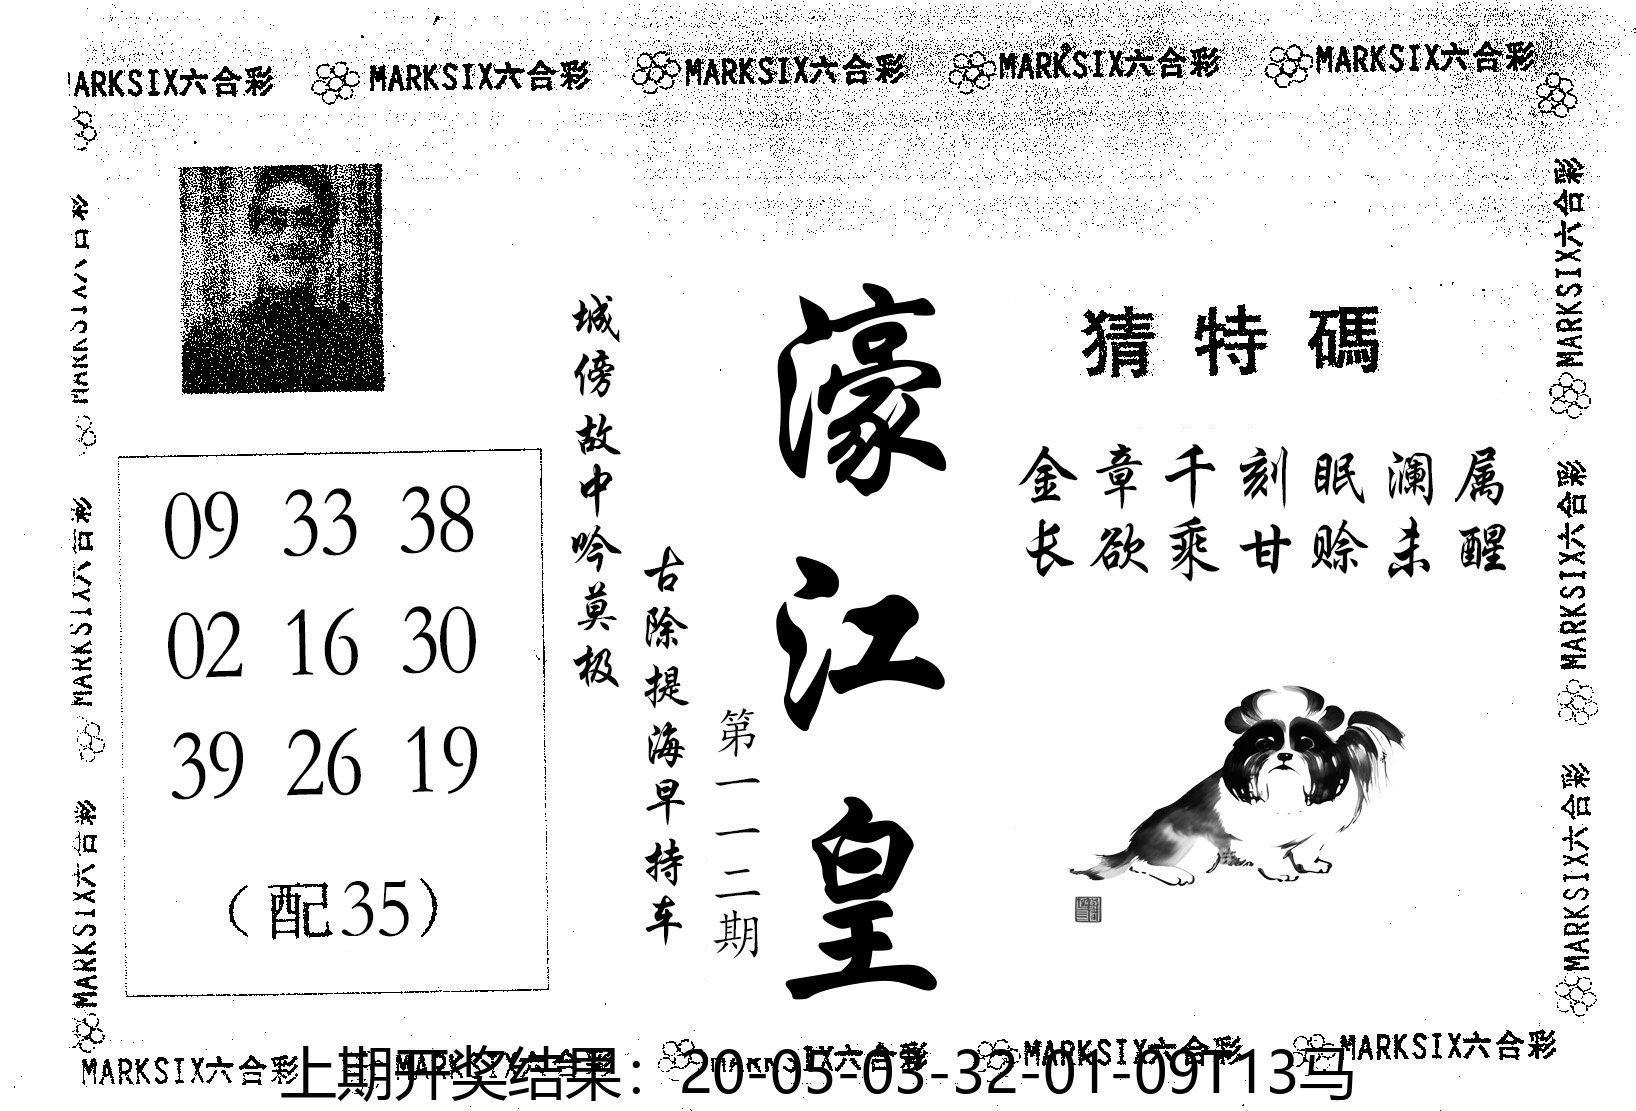 MARKSIX六合彩 MARKSIX六合彩 MARKSIX六合彩 MARKSIX六合彩 MARKSIX六合彩
MARKSIX六合彩
MARKSIX六合彩
MARKSIX六合彩
09 33 38
02 16 30
39 26 19
（配35）
城傍故中吟莫极
古除提海早持车
第一一二期
濠江皇
猜特碼
金章千刻眠澜属
长欲乘甘赊未醒
MARKSIX六合彩
MARKSIX六合彩
MARKSIX六合彩
MARKSIX六合彩 MARKSIX六合彩 MARKSIX六合彩 MARKSIX六合彩 MARKSIX六合彩
上期开奖结果：20-05-03-32-01-09T13马